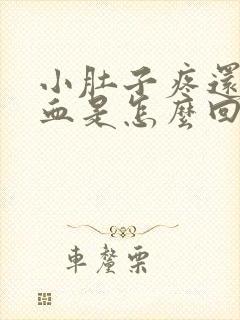 小肚子疼還
血是怎麼回
車釐栗